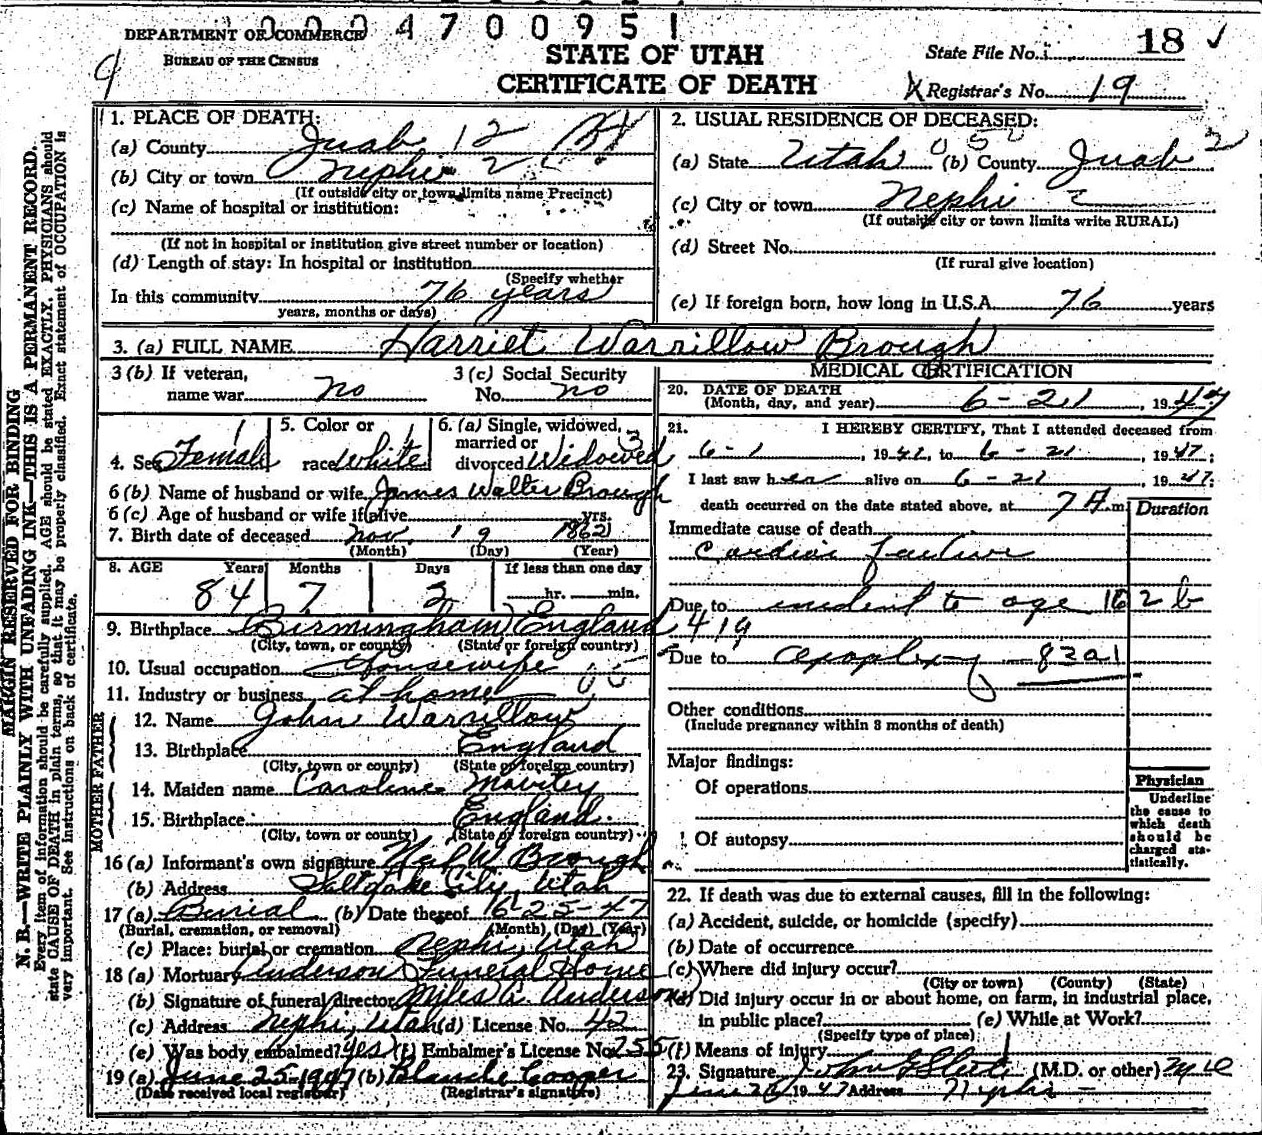 0004700951
DEPARTMENT OF COMMERCE
BUREAU OF THE CENSUS
STATE OF UTAH
CERTIFICATE OF DEATH
State File No. 18 ✓
Registrar's No. 19
MARGIN RESERVED FOR BINDING
N. B.—WRITE PLAINLY WITH UNFADING INK—THIS IS A PERMANENT RECORD.
Every item of information should be carefully supplied. AGE should be stated EXACTLY. PHYSICIANS should
state CAUSE OF DEATH in plain terms, so that it may be properly classified. Exact statement of OCCUPATION is
very important. See instructions on back of certificate.
1. PLACE OF DEATH:
(a) County Juab 12
(b) City or town Nephi 2
(If outside city or town limits name Precinct)
(c) Name of hospital or institution:
(If not in hospital or institution give street number or location)
(d) Length of stay: In hospital or institution
(Specify whether
In this community 76 years
years, months or days)
2. USUAL RESIDENCE OF DECEASED:
(a) State Utah (b) County Juab 2
(c) City or town Nephi
(If outside city or town limits write RURAL)
(d) Street No.
(If rural give location)
(e) If foreign born, how long in U.S.A. 76 years
3. (a) FULL NAME Harriet Warrillow Brough
3 (b) If veteran, name war no
3 (c) Social Security No. no
4. Sex Female
5. Color or race White
6. (a) Single, widowed, married or divorced Widowed
6 (b) Name of husband or wife James Walter Brough
6 (c) Age of husband or wife if alive yrs.
7. Birth date of deceased Nov. 19 1862
(Month) (Day) (Year)
8. AGE Years Months Days If less than one day
84 7 2 hr. min.
9. Birthplace Birmingham England
(City, town, or county) (State or foreign country)
10. Usual occupation Housewife
11. Industry or business at home
FATHER
12. Name John Warrillow
13. Birthplace England
(City, town or county) (State or foreign country)
MOTHER
14. Maiden name Caroline
15. Birthplace England.
(City, town or county) (State or foreign country)
16 (a) Informant's own signature W. Brough
(b) Address Salt Lake City, Utah
17 (a) Burial (b) Date thereof 6-25-47
(Burial, cremation, or removal) (Month) (Day) (Year)
(c) Place: burial or cremation Nephi, Utah
18 (a) Mortuary Anderson Funeral Home
(b) Signature of funeral director Miles A. Anderson
(c) Address Nephi, Utah (d) License No. 42
(e) Was body embalmed? yes (f) Embalmer's License No. 255
19 (a) June 25 1947 (b) Blanche Cooper
(Date received local registrar) (Registrar's signature)
MEDICAL CERTIFICATION
20. DATE OF DEATH
(Month, day, and year) 6-21, 1947
21. I HEREBY CERTIFY, That I attended deceased from
6-1, 19 to 6-21, 1947;
I last saw her alive on 6-21, 1947;
death occurred on the date stated above, at 7 A. m.
Duration
Immediate cause of death
Cardiac failure
Due to incident to age 162 b
419
Due to apoplexy 83a1
Other conditions
(Include pregnancy within 3 months of death)
Major findings:
Of operations
Of autopsy
Physician
Underline
the cause to
which death
should be
charged sta-
tistically.
22. If death was due to external causes, fill in the following:
(a) Accident, suicide, or homicide (specify)
(b) Date of occurrence
(c) Where did injury occur?
(City or town) (County) (State)
(d) Did injury occur in or about home, on farm, in industrial place,
in public place? (e) While at Work?
(Specify type of place)
(f) Means of injury
23. Signature John (M.D. or other)
June 26 1947 Address Nephi